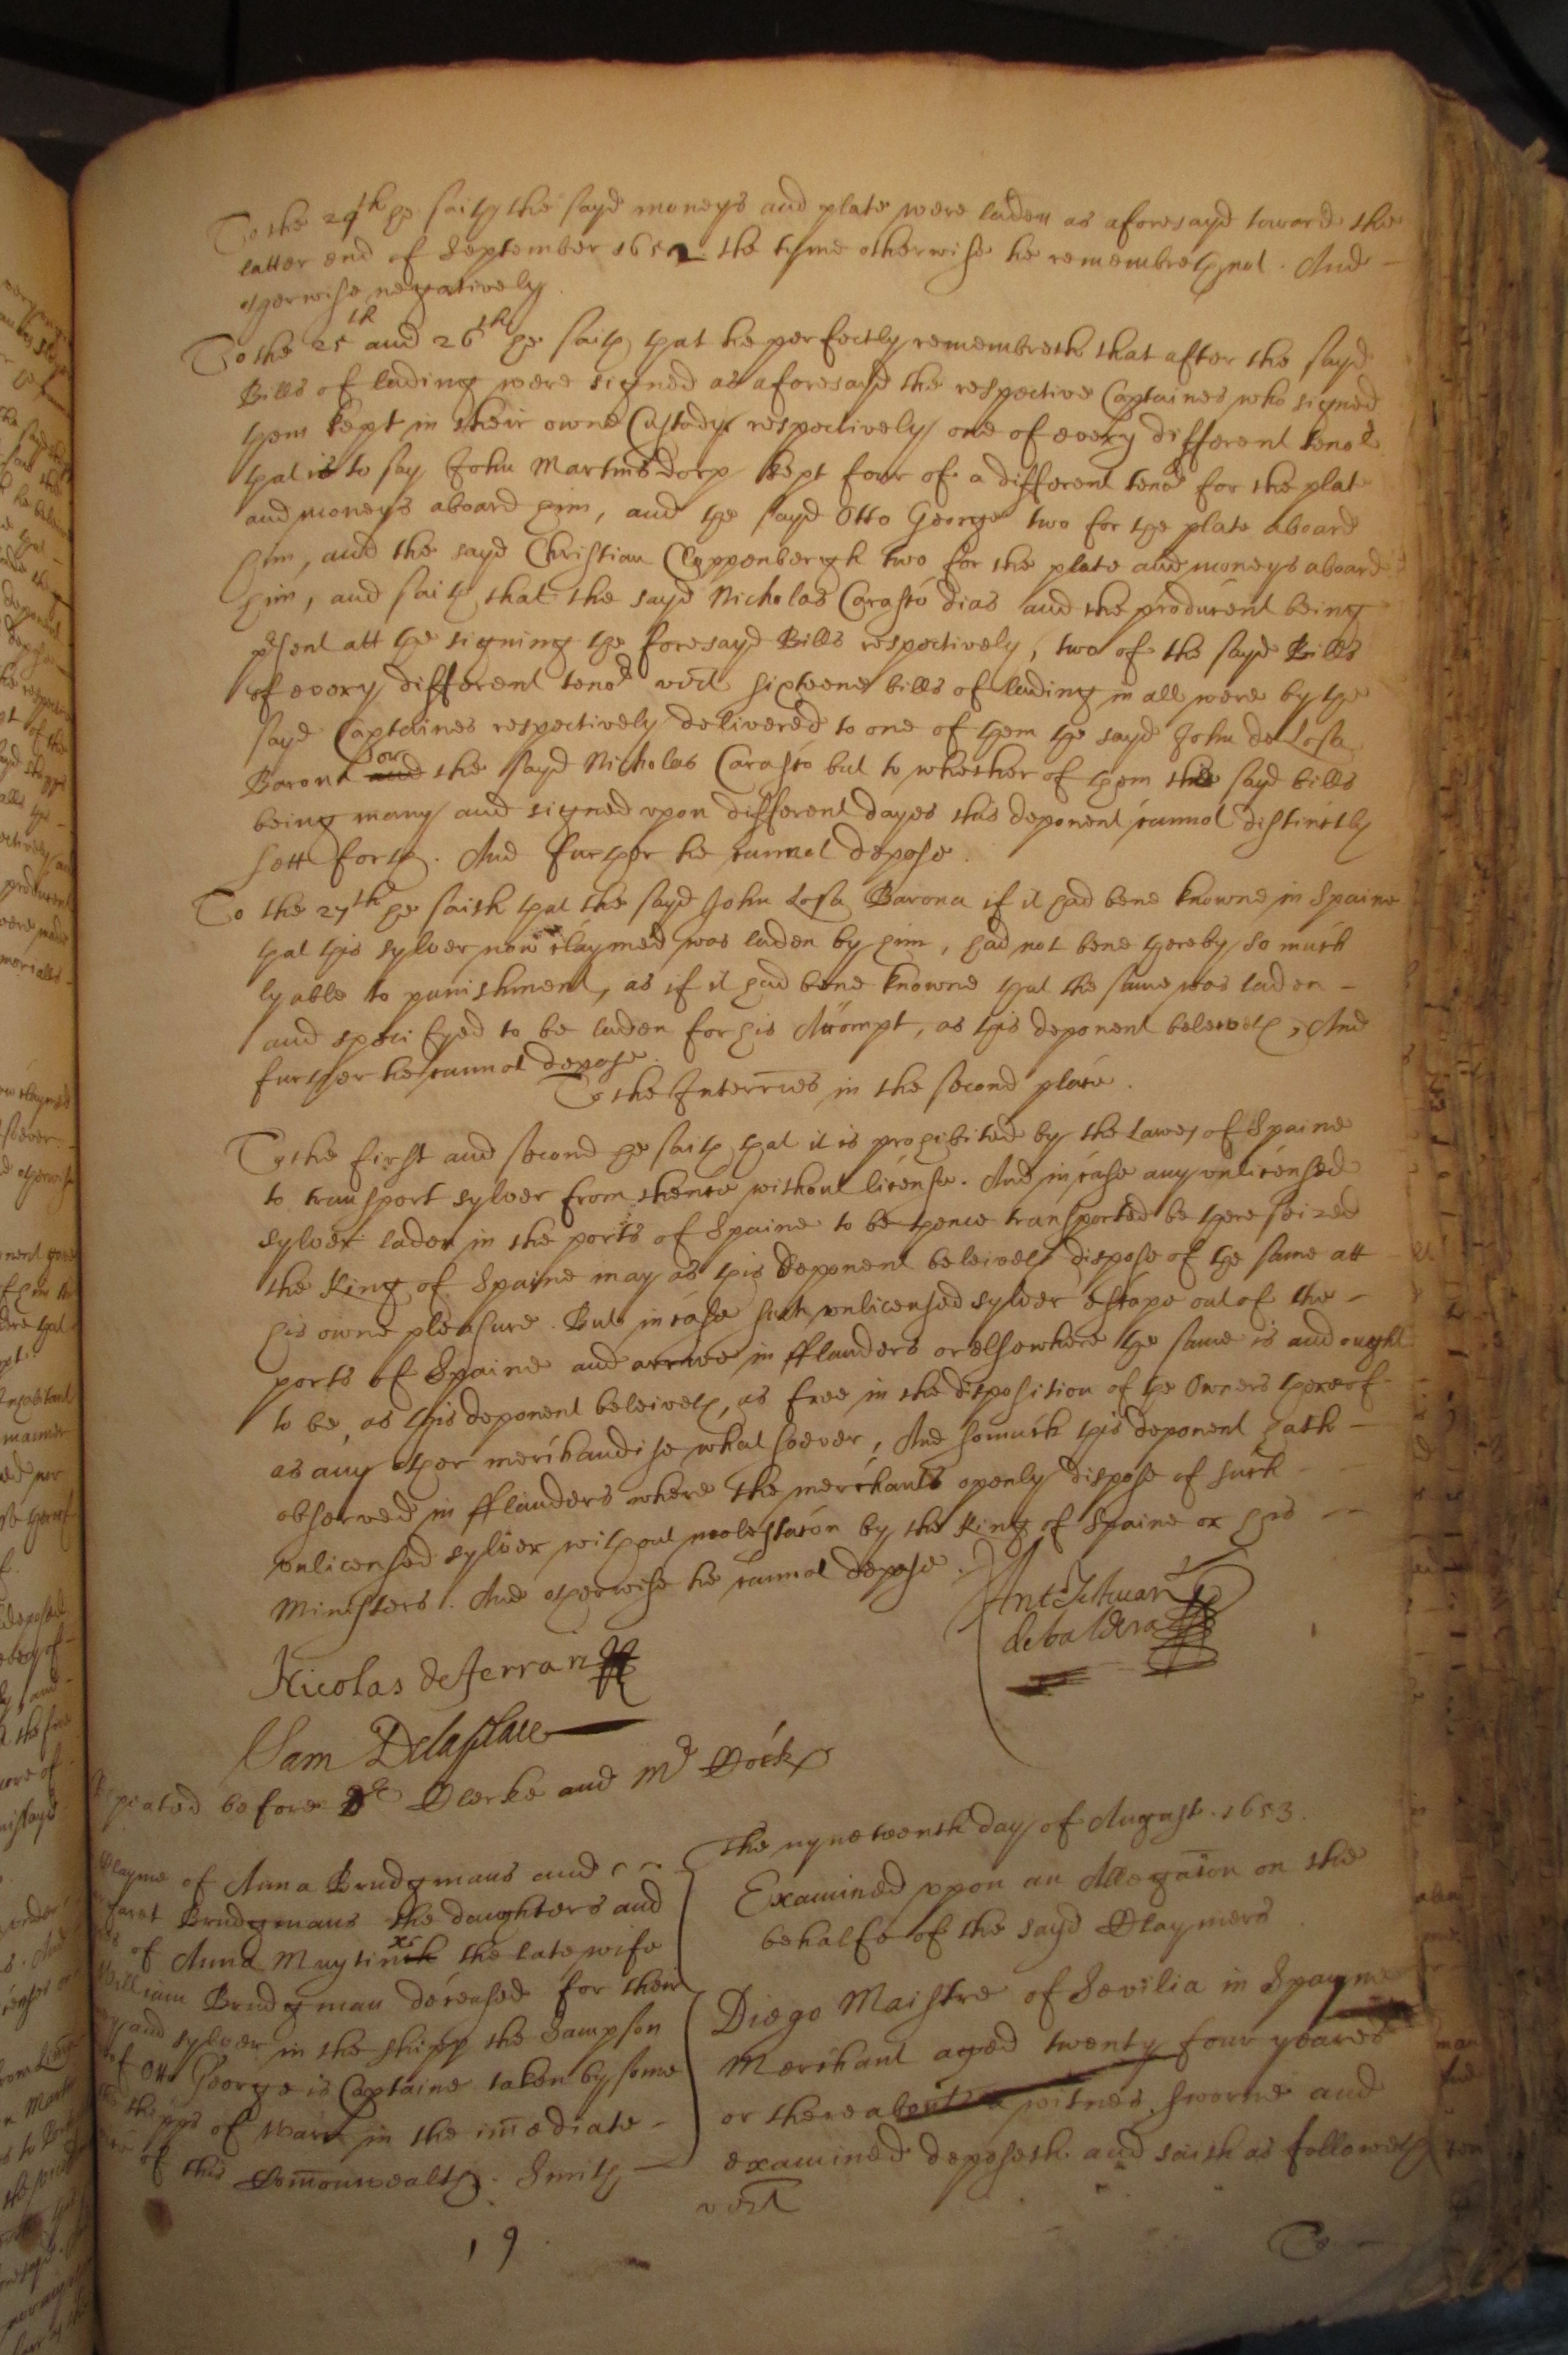 To the 24th he saith the sayd moneys and plate were laden as aforesayd toward the
latter end of September 1652 the tyme otherwise he remembreth not. And
otherwise negatively.
To the 25th and 26th he saith that he perfectly remembreth that after the sayd
Bills of lading were signed as aforesayd the respective Captaines who signed
them kept in their owne Custody respectively one of every different tenor
that is to say John Martins dorp kept four of a different tenor for the plate
and moneys aboard him, and the sayd Otto George two for the plate aboard
him, and the sayd Christian Cloppenbergh two for the plate and moneys aboard
him, and saith that the sayd Nicholas Carasto dias and the producent being
present att the signing the foresayd Bills respectively, two of the sayd Bills
of every different tenor vizt sixteene bills of lading in all were by the
sayd Captaines respectively delivered to one of them the sayd John de Losa
Barona or the sayd Nicholas Carasto but to whether of them the sayd bills
being many and signed upon different dayes this deponent cannot distinctly
sett forth. And further he cannot depose.
To the 27th he saith that the sayd John Losa Barona if it had bene knowne in Spaine
that this sylver now claymed was laden by him, had not bene thereby so much
lyable to punishment, as if it had bene knowne that the same was laden
and specifyed to be laden for his Accompt, as this deponent beleiveth, And
further he cannot depose.
To the Interries in the second place.
To the first and second he saith that it is prohibited by the Lawes of Spaine
to transport sylver from thence without license. And in case any unlicensed
sylver laden in the ports of Spaine to be thence transported be there seized
the King of Spaine may as this deponent beleiveth dispose of the same att
his owne pleasure. But in case such unlicensed sylver escape out of the
ports of Spaine and arrive in fflanders or elsewhere the same is and ought
to be, as this deponent beleiveth, as free in the disposition of the Owners thereof
as any other merchandise whatsoever, And somuch this deponent hath
observed in fflanders where the merchants openly dispose of such
unlicensed sylver without molestacon by the King of Spaine or his
Ministers. And otherwise he cannot depose.
Nicolas de ferran
Sam Delaplace
Repeated before Dr Clerke and Mr Dock
The nyneteenth day of August. 1653.
Clayme of Anna Brudgmans and
Brudgmans the daughters and
of Anna Muytinx the late wife
William Brudgman deceased for their
and sylver in the shipp the Sampson
Otto George is Captaine taken by some
shipps of warr in the imediate
of this Comonwealth. Smith
Examined upon an Allegacon on the
behalfe of the sayd Claymers
Diego Maistre of Sevilia in Spayne
Merchant aged twenty four yeares
or thereabouts a witnes sworne and
examined deposeth and saith as followeth
vizt
19
To